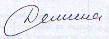 Демина